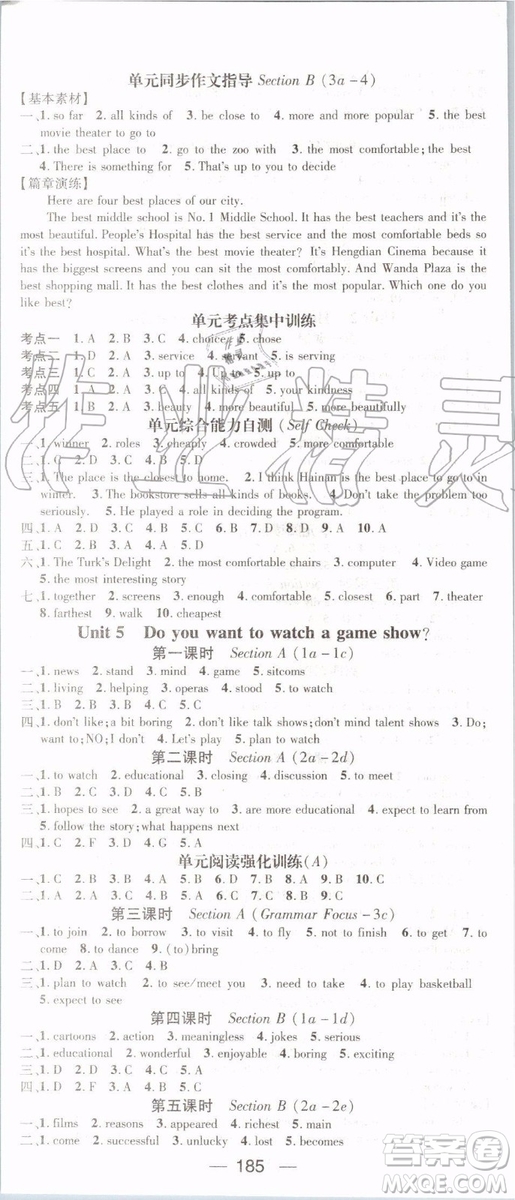 单元同步作文指导 Section B (3a-4)
【基本素材】
一、1. so far 2. all kinds of 3. be close to 4. more and more 5. the best
movie theater to go to
二、1. the best place to 2. go to the zoo with 3. the most comfortable; the best
4. There is something for 5. That's up to you to decide
【篇章演练】
Here are four best places of our city.
The best middle school is No. 1 Middle School. It has the best teachers and it's
the most beautiful. People's Hospital has the best service and the most comfortable beds so
it's the best hospital. What's the best movie theater? It's Hengdian Cinema because it
has the biggest screens and you can sit the most comfortably. And Wanda Plaza is the
best shopping mall. It has the best clothes and it's the most popular. Which one do you
like best?
单元考点集中训练
考点一 1. A 2. B 3. C 4. choice 5. chose
考点二 1. D 2. A 3. service 4. servant 5. is serving
考点三 1. C 2. A 3. up to 4. up to 5. up to
考点四 1. B 2. A 3. C 4. All kinds of 5. your kindness
考点五 1. B 2. A 3. beauty 4. more beautiful 5. the most beautiful
单元综合能力自测 (Self Check)
一、1. winner 2. roles 3. cheaply 4. crowded 5. more comfortable
二、1. C 2. D 3. B 4. A 5. D
三、1. The place is close to my home. 2. I think Hainan is the best place to go to in
winter. 3. The bookstore sells all kinds of books. 4. Don't take the problem too
seriously. 5. He played a role in deciding the program.
四、1. A 2. D 3. C 4. A 5. B 6. C 7. B 8. D 9. C 10. A
五、1. C 2. B 3. D 4. A 5. C
六、1. The Turk's Delight 2. the most comfortable chairs 3. computer 4. Video game
5. the most interesting story
七、1. together 2. screens 3. enough 4. comfortable 5. closest 6. part 7. theater
8. farthest 9. walk 10. cheapest
Unit 5 Do you want to watch a game show?
第一课时 Section A (1a-1c)
一、1. news 2. stand 3. mind 4. game 5. sitcoms
二、1. living 2. helping 3. operas 4. stand 5. to have
三、1. B 2. D 3. C 4. B 5. A
四、1. don't like; a bit boring 2. don't like talk shows; don't mind talent shows 3. Do;
want to; NO; I don't 4. Let's play 5. plan to watch
第二课时 Section A (2a-2d)
一、1. to watch 2. educational 3. closing 4. discussion 5. to meet
二、1. B 2. D 3. C 4. A 5. D
三、1. hopes to see 2. a great way to 3. are more educational 4. expect to learn from
5. follow the story; what happens next
四、1. C 2. F 3. G 4. D 5. A
单元阅读强化训练(A)
一、1. C 2. C 3. B 4. A 5. C 6. D 7. D 8. B 9. A 10. B
第三课时 Section A (Grammar Focus-3c)
一、1. to join 2. to borrow 3. to visit 4. to fly 5. not to finish 6. to have 7. to put
8. to dance 9. (to) cover 10. to bring
二、1. D 2. B 3. C 4. A 5. A
三、1. plan to watch 2. to see/meet you 3. need to take 4. to play basketball
5. expect to see
第四课时 Section B (1a-1d)
一、1. cartoons 2. action 3. meaningless 4. jokes 5. serious
二、1. educational 2. wonderful 3. enjoyable 4. boring 5. exciting
三、1. D 2. A 3. C 4. D 5. B
四、1. D 2. A 3. C 4. B
第五课时 Section B (2a-2e)
一、1. films 2. reasons 3. appeared 4. rich 5. main
二、1. come 2. successful 3. unlucky 4. lost 5. to become
185
作业精灵
答案圈
MXQE.COM